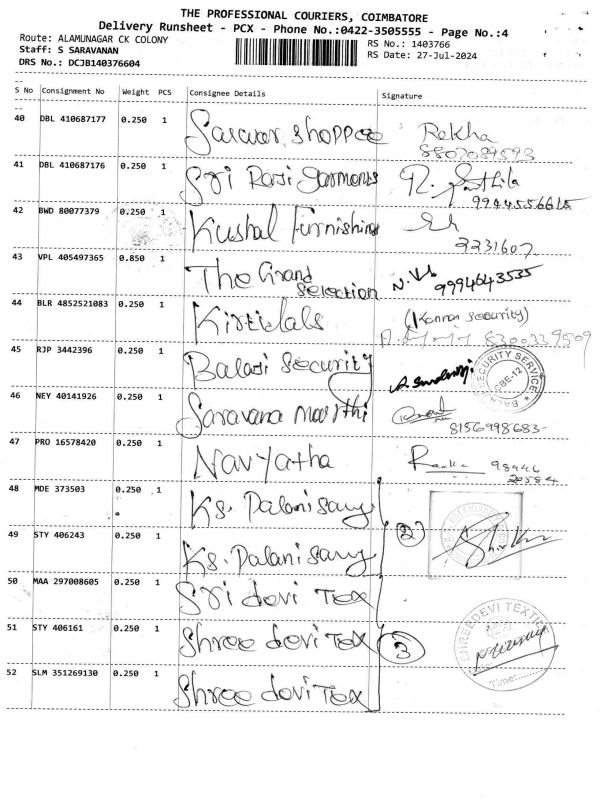 THE PROFESSIONAL COURIERS, COIMBATORE
Delivery Runsheet - PCX - Phone No.:0422-3505555 - Page No.:4
Route: ALAMUNAGAR CK COLONY
RS No.: 1403766
Staff: S SARAVANAN
RS Date: 27-Jul-2024
DRS No.: DCJB140376604
S No Consignment No Weight PCS Consignee Details Signature
40 DBL 410687177 0.250 1 Saravar shoppee Rekha
8807089593
41 DBL 410687176 0.250 1 Sri Raji Garments
9944556615
42 BWD 80077379 0.250 1 Kushal Furnishing
2231607
43 VPL 405497365 0.850 1 The Grand
Selection 9994643535
44 BLR 4852521083 0.250 1 Kirtilals (Kannan Security)
45 RJP 3442396 0.250 1 Balaji Security
SECURITY SERVICE
CBE-12
46 NEY 40141926 0.250 1 Saravana Maruthi
8156998683-
47 PRO 16578420 0.250 1 Navyatha 98946
20584
48 MDE 373503 0.250 1 Ks. Palanisamy
49 STY 406243 0.250 1 Ks. Palanisamy 2
50 MAA 297008605 0.250 1 Sri devi Tex
51 STY 406161 0.250 1 Shree devi Tex 3
SHREEDEVI TEXTILE
52 SLM 351269130 0.250 1 Shree devi Tex
Time: